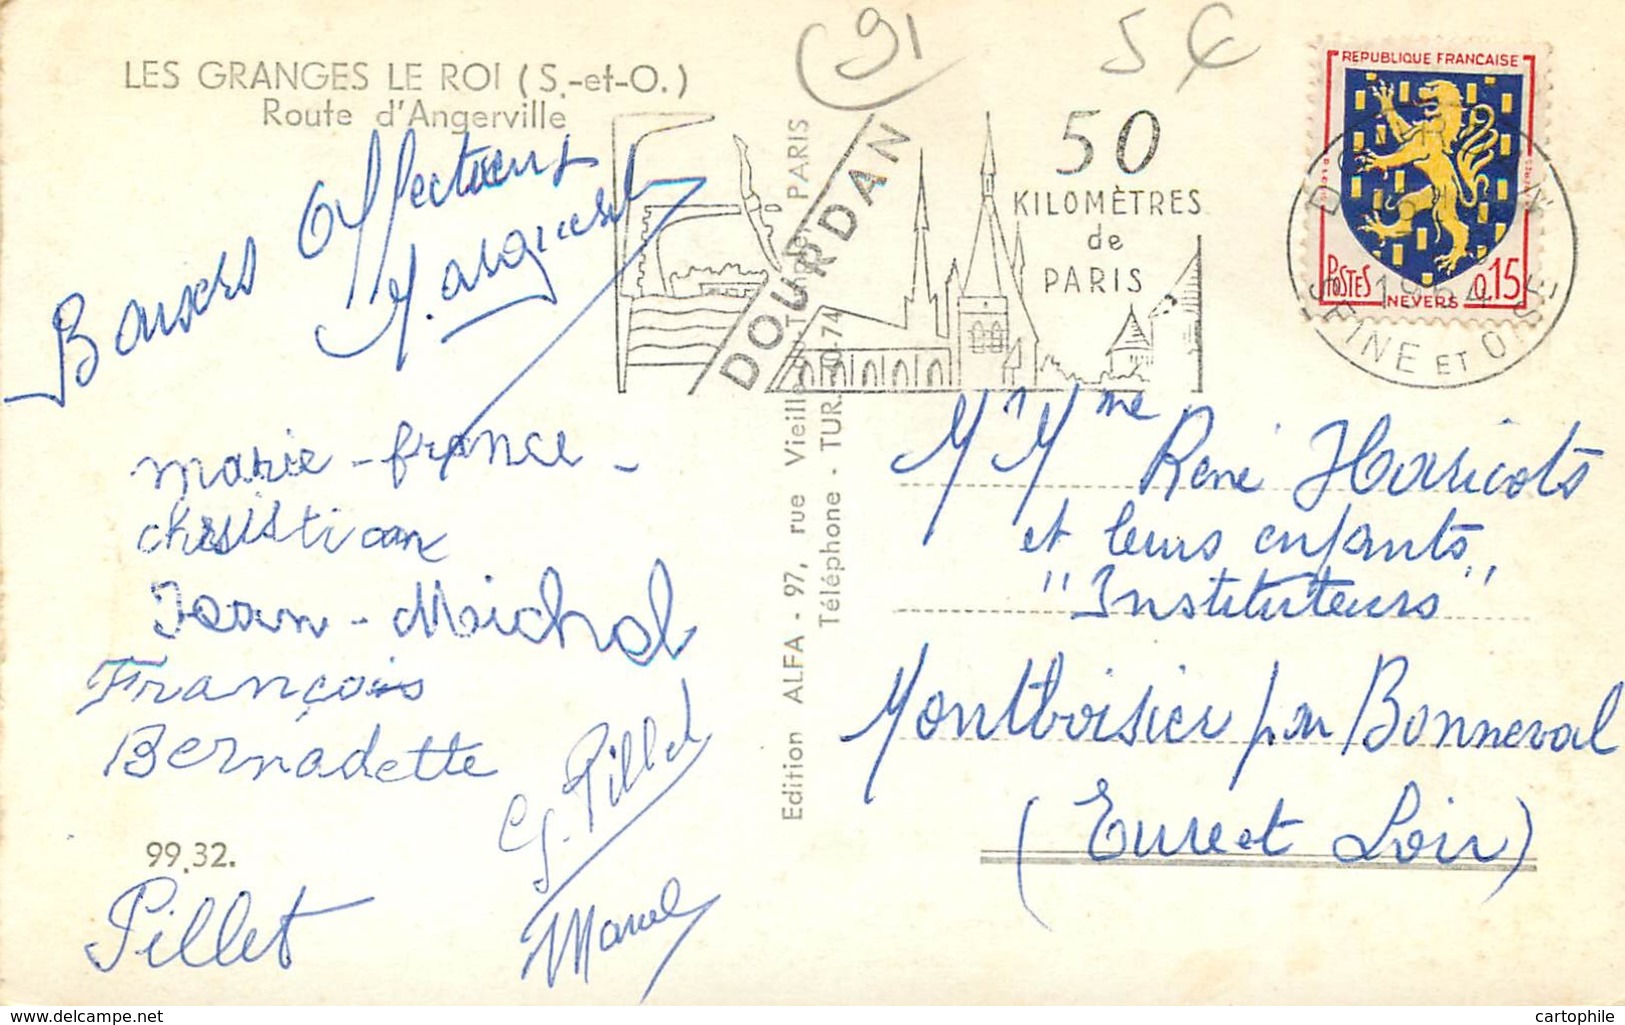 LES GRANGES LE ROI (S.-et-O.)
Route d'Angerville
91
5 €
Baisers Affectueux
Marie-france -
christian
Jean-Michel
François
Bernadette
G. Pillet
Marcel
99.32.
Pillet
Edition ALFA - 97, rue Vieille du Temple, PARIS
Téléphone - TUR. 40-74
DOURDAN
50
KILOMÈTRES
de
PARIS
REPUBLIQUE FRANCAISE
POSTES
NEVERS
0,15
DOURDAN
1964
SEINE ET OISE
Mr Mme René Haricots
et leurs enfants
"Instituteurs"
Montboisier par Bonneval
(Eure et Loir)
cartophile
www.delcampe.net